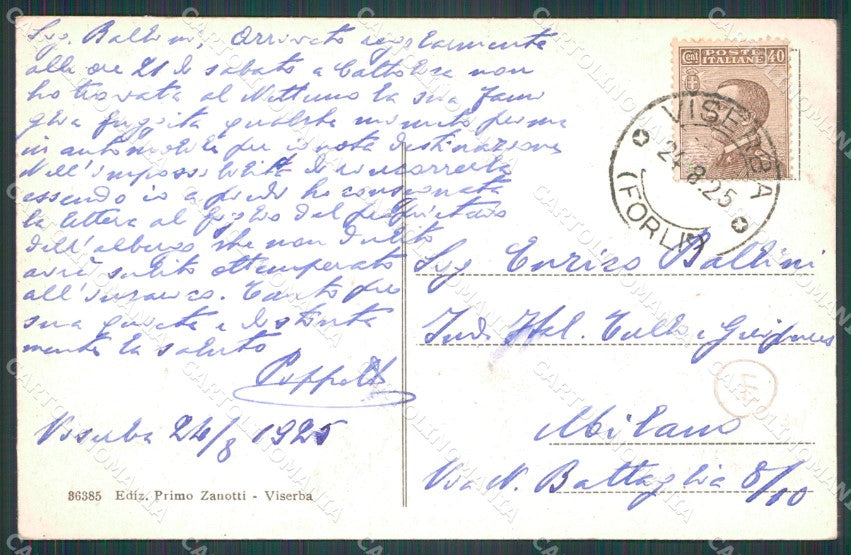 Sig. Ballini, Arrivato regolarmente
alle ore 21 di sabato a Cattolica non
ho trovata al Nettuno la sua fami
glia fuggita qualche minuto prima
in automobile per ignota destinazione
Nell'impossibilità di rincorrerla
essendo io a piedi ho consegnata
la lettera al figlio del proprietario
dell'albergo che non dubito
avrà subito ottemperato
all'incarico. Tanto per
sua quiete e distinta
mente la saluto
Viserba 24/8 1925
36385 Ediz. Primo Zanotti - Viserba
POSTE ITALIANE
Cent 40
VISERBA
24.8.25
(FORLÌ)
Sig Enrico Ballini
Ind. Ital. Tulli e
Milano
Via N. Battaglia 8/10
CARTOLINOMANIA